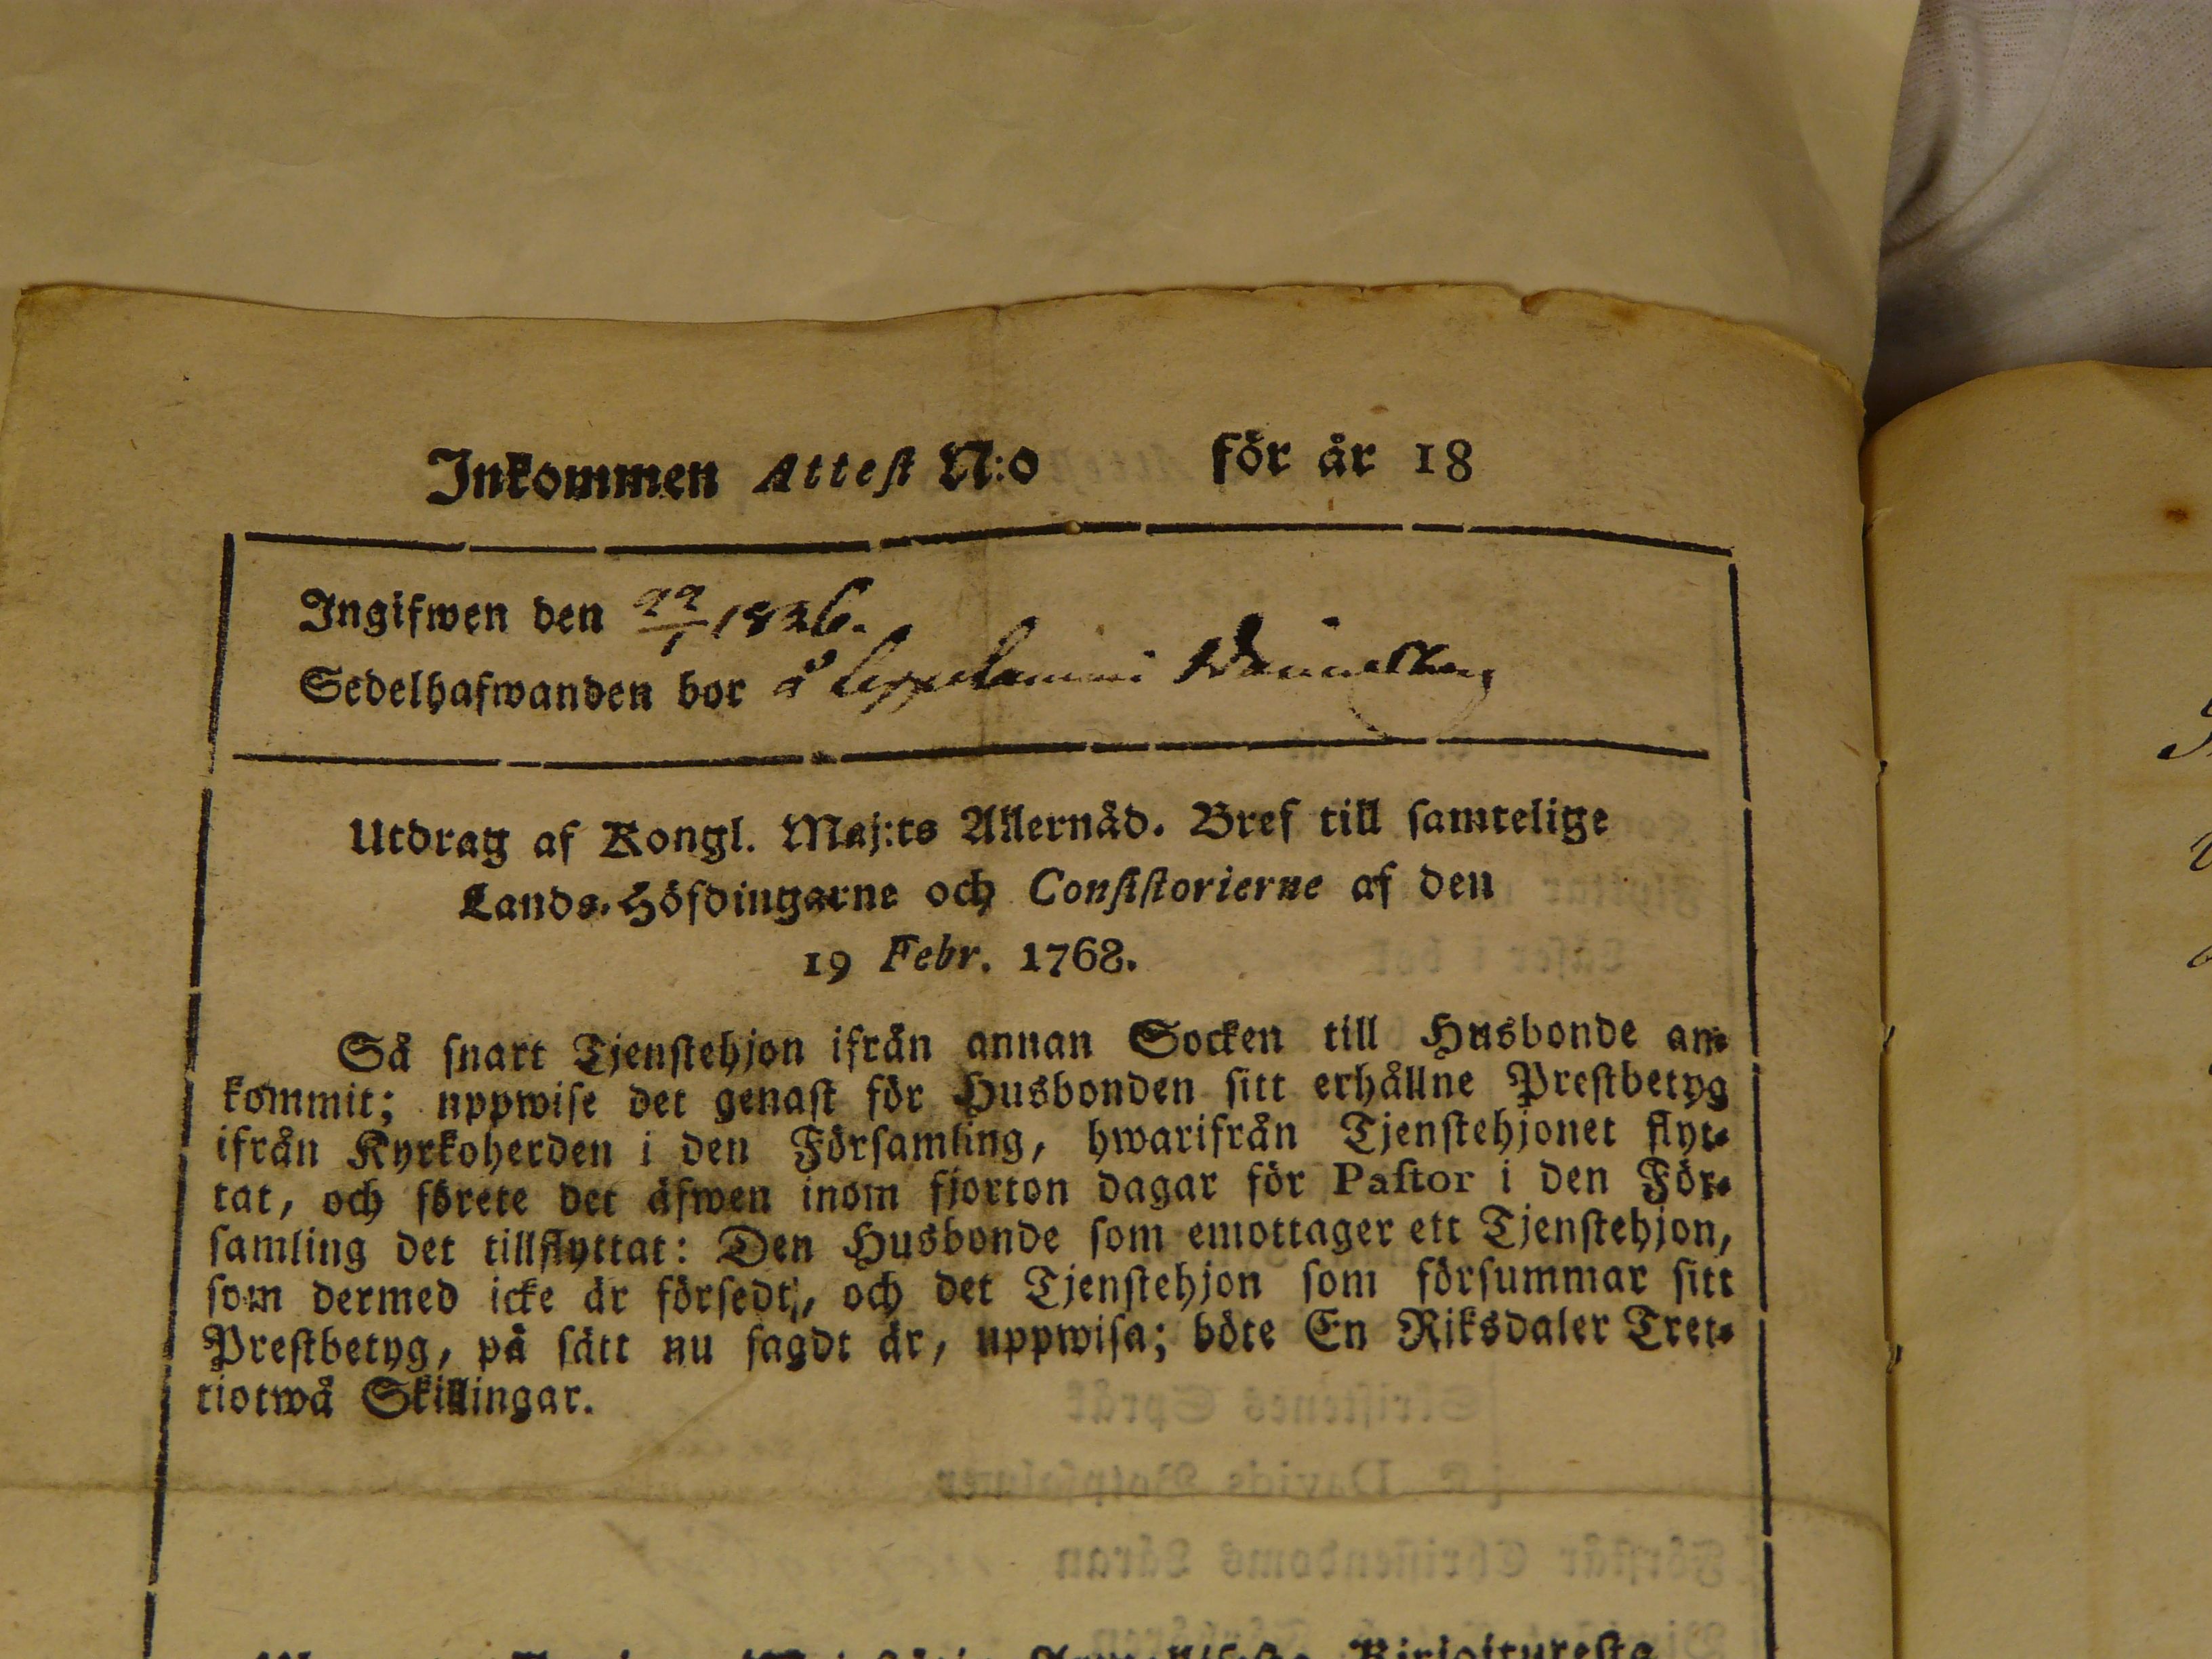 Inkommen Attest N:o för år 18
Ingifwen den 22/1 1826.
Sedelhafwanden bor å
Utdrag af Kongl. Maj:ts Allernåd. Bref till samtelige
Lands-Höfdingarne och Consistorierne af den
19 Febr. 1768.
Så snart Tjenstehjon ifrån annan Socken till Husbonde an-
kommit; uppwise det genast för Husbonden sitt erhållne Prestbetyg
ifrån Kyrkoherden i den Församling, hwarifrån Tjenstehjonet flyt-
tat, och förete det äfwen inom fjorton dagar för Pastor i den För-
samling det tillflyttat: Den Husbonde som emottager ett Tjenstehjon,
som dermed icke är försedt, och det Tjenstehjon som försummar sitt
Prestbetyg, på sätt nu sagdt är, uppwisa; böte En Riksdaler Tret-
tiotwå Skillingar.